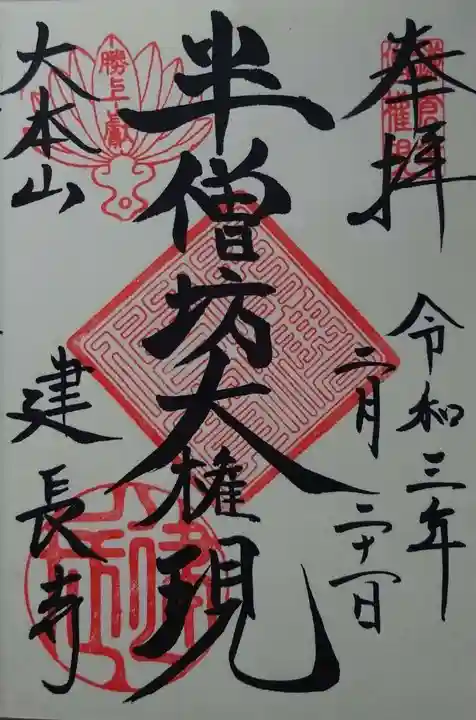 奉拝
令和三年
二月二十一日
半僧坊大権現
大本山
建長寺